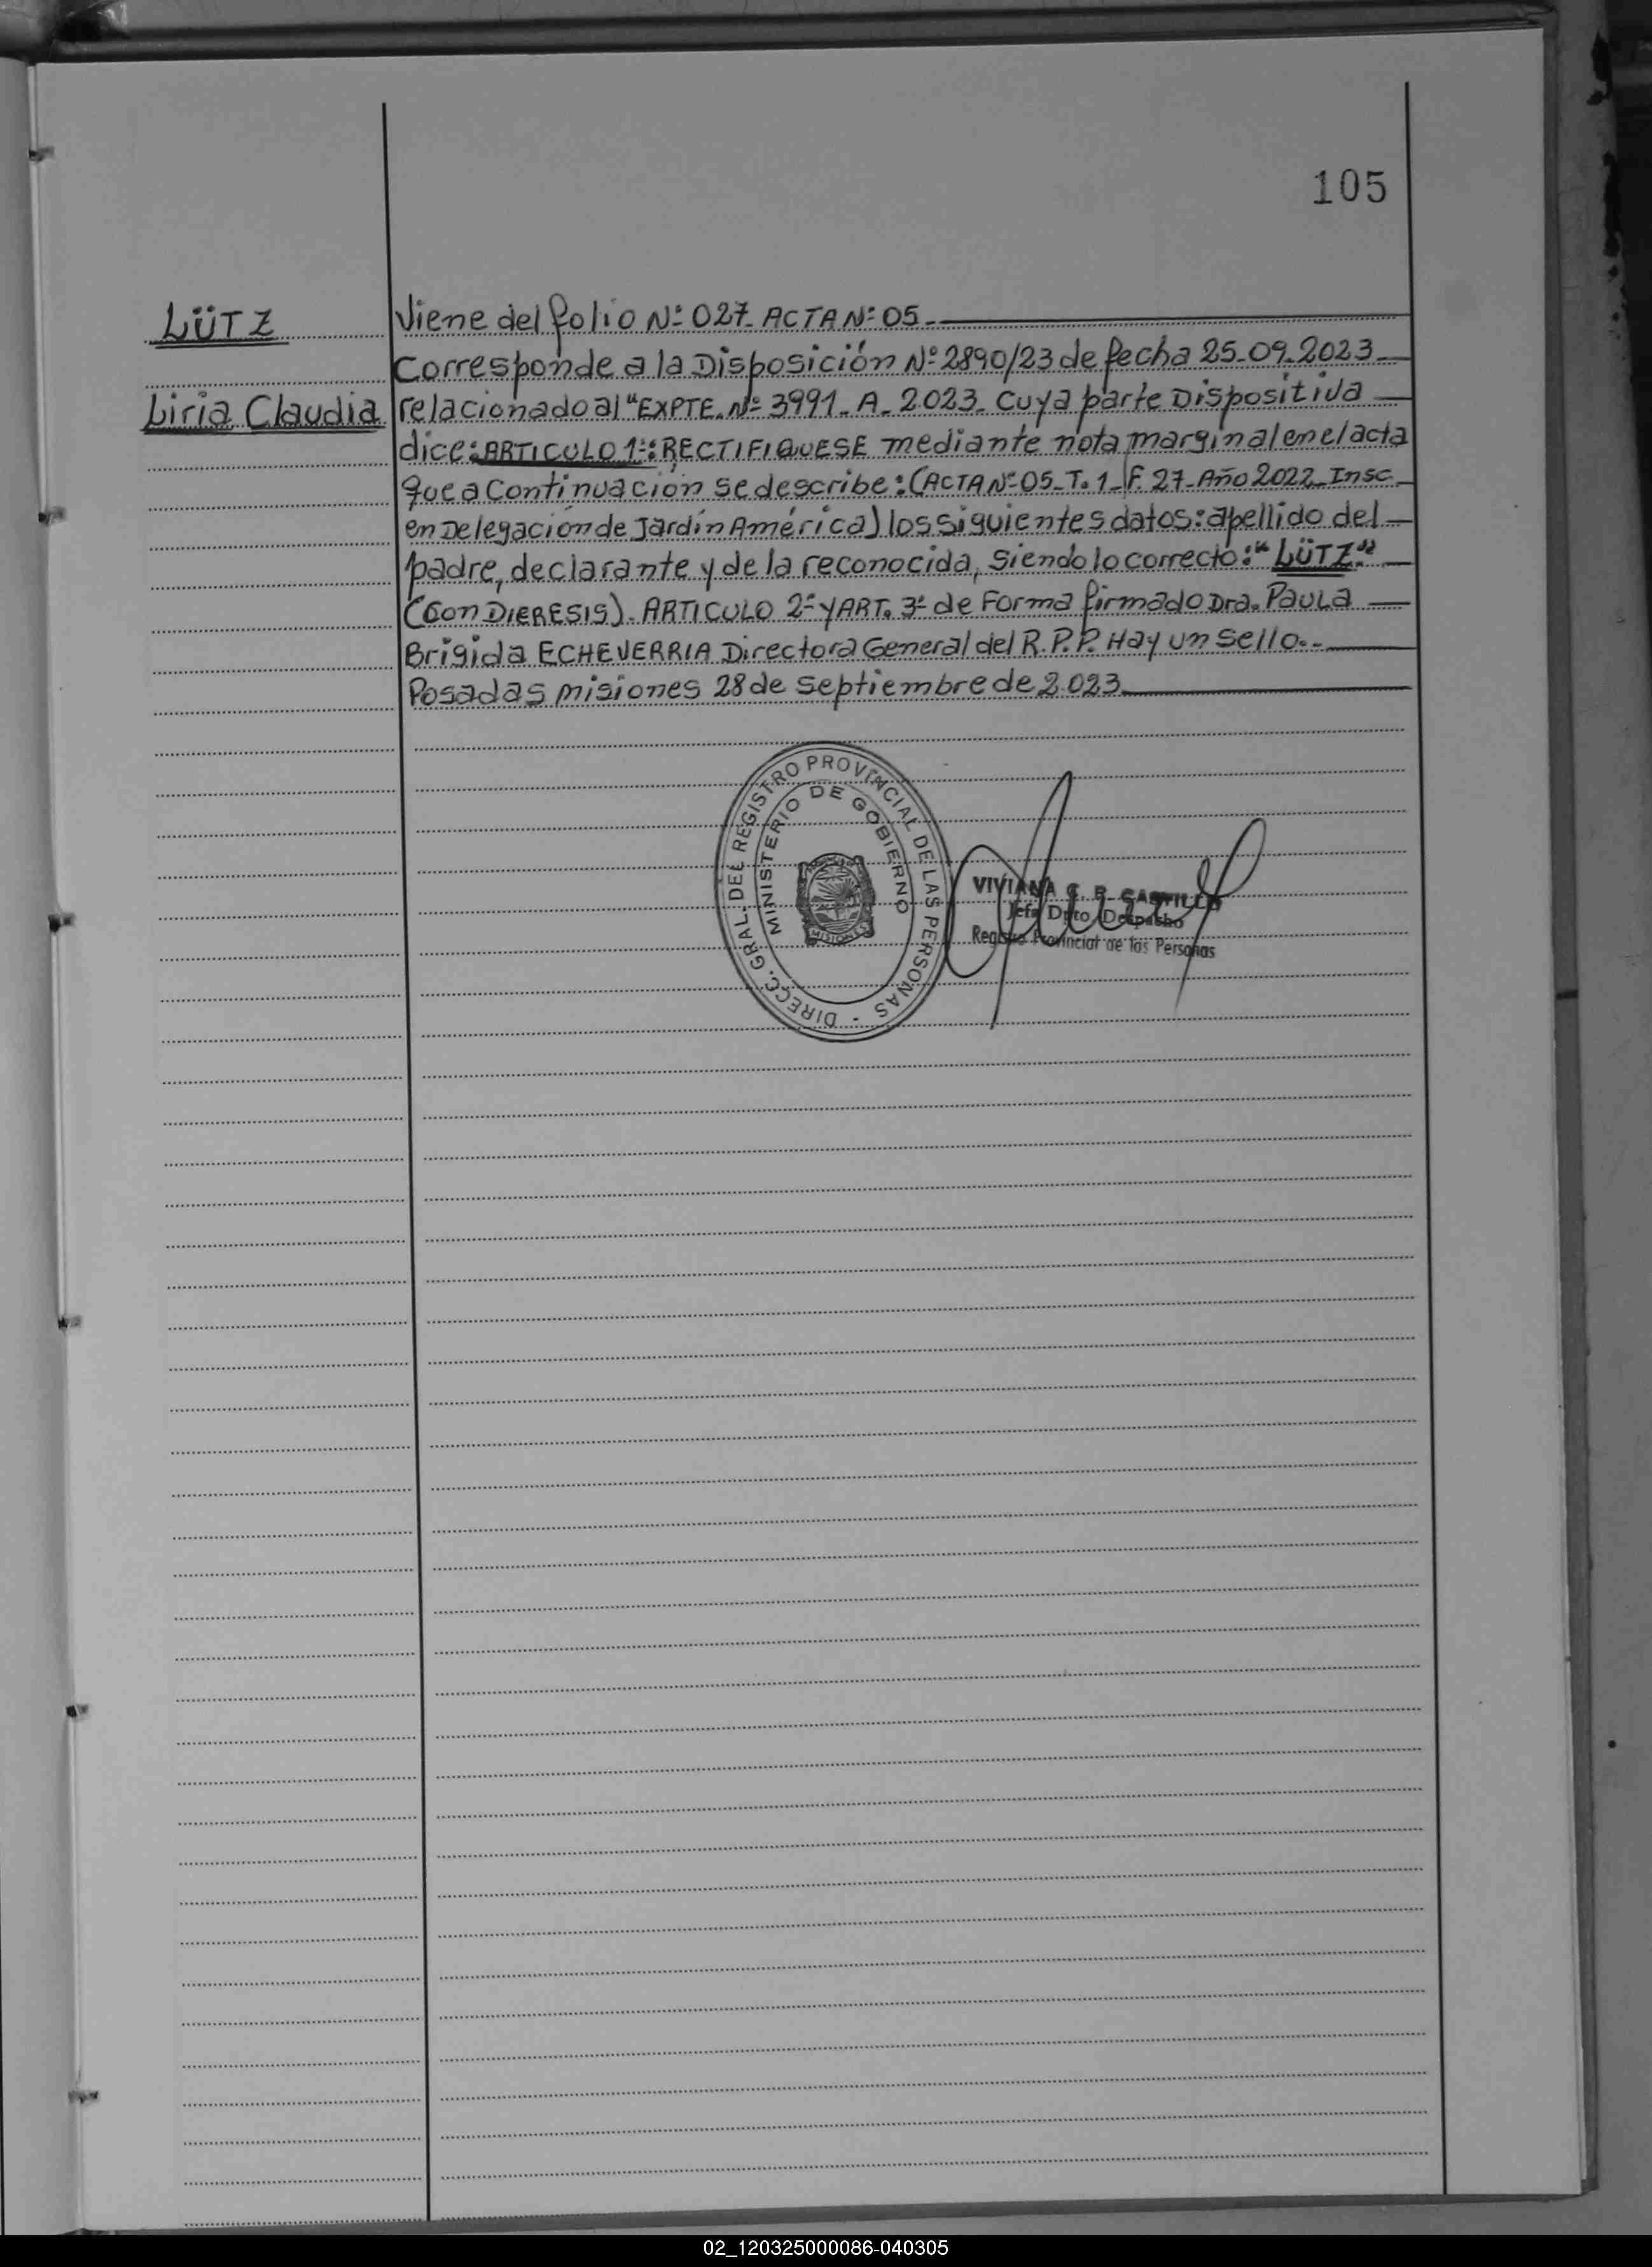 105
LÜTZ
Liria Claudia
Viene del folio Nº 027. ACTA Nº 05.
Corresponde a la Disposición Nº 2890/23 de fecha 25-09-2023
relacionado al "EXPTE. Nº 3991-A-2023. Cuya parte Dispositiva
dice: ARTICULO 1º: RECTIFIQUESE mediante nota marginal en el acta
que a Continuación se describe: (ACTA Nº 05-T.1-F.27-Año 2022-Insc.
en Delegación de Jardín América) los siguientes datos: apellido del
padre, declarante y de la reconocida, siendo lo correcto: "LÜTZ"
(con DIERESIS). ARTICULO 2º Y ART. 3º de Forma firmado Dra. Paula
Brigida ECHEVERRIA Directora General del R.P.P. Hay un sello..
Posadas misiones 28 de septiembre de 2.023
DIRECC. GRAL. DEL REGISTRO PROVINCIAL DE LAS PERSONAS -
MINISTERIO DE GOBIERNO
MISIONES
VIVIANA C. R. CASTILLO
Jefa Dpto. Despacho
Registro Provincial de las Personas
02_120325000086-040305